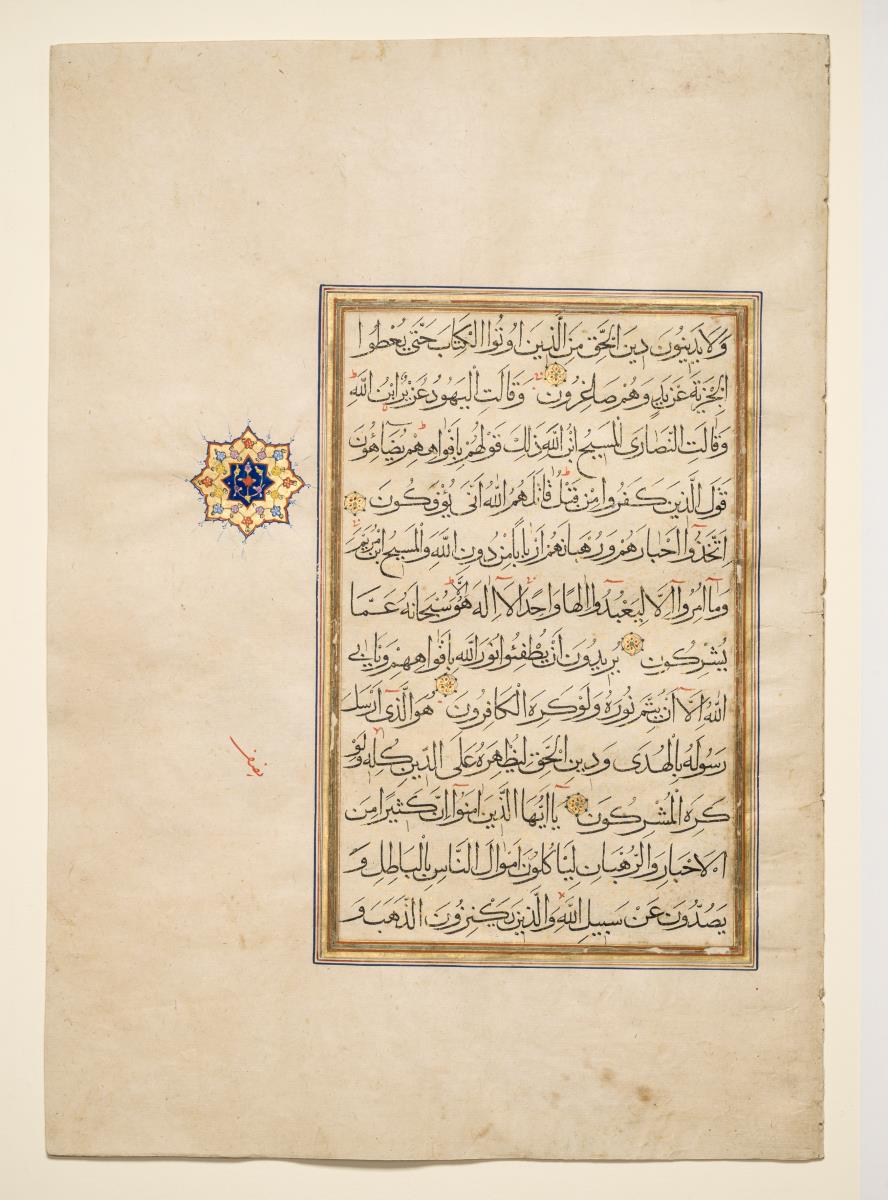 وَلَا يَدِينُونَ دِينَ الْحَقِّ مِنَ الَّذِينَ اُوتُوا الْكِتَابَ حَتّٰى يُعْطُوا
الْجِزْيَةَ عَنْ يَدٍ وَهُمْ صَاغِرُونَ وَقَالَتِ الْيَهُودُ عُزَيْرٌ ابْنُ اللّٰهِ
وَقَالَتِ النَّصَارَى الْمَسِيحُ ابْنُ اللّٰهِ ذٰلِكَ قَوْلُهُمْ بِاَفْوَاهِهِمْ يُضَاهِئُونَ
قَوْلَ الَّذِينَ كَفَرُوا مِنْ قَبْلُ قَاتَلَهُمُ اللّٰهُ اَنّٰى يُؤْفَكُونَ
اِتَّخَذُوا اَحْبَارَهُمْ وَرُهْبَانَهُمْ اَرْبَابًا مِنْ دُونِ اللّٰهِ وَالْمَسِيحَ ابْنَ مَرْيَمَ
وَمَا اُمِرُوا اِلَّا لِيَعْبُدُوا اِلٰهًا وَاحِدًا لَا اِلٰهَ اِلَّا هُوَ سُبْحَانَهُ عَمَّا
يُشْرِكُونَ يُرِيدُونَ اَنْ يُطْفِئُوا نُورَ اللّٰهِ بِاَفْوَاهِهِمْ وَيَاْبَى
اللّٰهُ اِلَّا اَنْ يُتِمَّ نُورَهُ وَلَوْ كَرِهَ الْكَافِرُونَ هُوَ الَّذِى اَرْسَلَ
رَسُولَهُ بِالْهُدٰى وَدِينِ الْحَقِّ لِيُظْهِرَهُ عَلَى الدِّينِ كُلِّهِ وَلَوْ
كَرِهَ الْمُشْرِكُونَ يَا اَيُّهَا الَّذِينَ اٰمَنُوا اِنَّ كَثِيرًا مِنَ
الْاَحْبَارِ وَالرُّهْبَانِ لَيَاْكُلُونَ اَمْوَالَ النَّاسِ بِالْبَاطِلِ وَ
يَصُدُّونَ عَنْ سَبِيلِ اللّٰهِ وَالَّذِينَ يَكْنِزُونَ الذَّهَبَ وَ
نصف